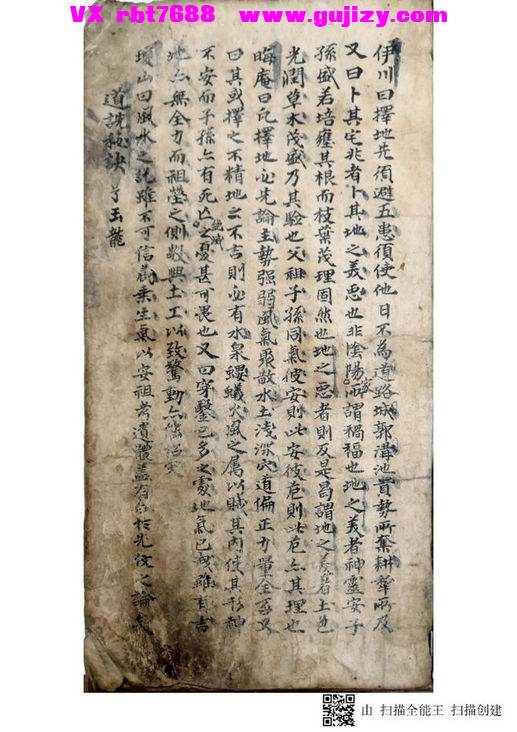 VX rbt7688 www.gujizy.com
伊川曰擇地先須避五患須使他日不為道路城郭溝池貴勢所奪耕犂所及
又曰卜其宅兆者卜其地之美惡也非陰陽家所謂禍福也地之美者神靈安子
孫盛若培壅其根而枝葉茂理固然也地之惡者則反是曷謂地之美者土色
光潤草木茂盛乃其驗也父祖子孫同氣彼安則此安彼危則此危亦其理也
晦庵曰凡擇地必先論主勢強弱風氣聚散水土淺深穴道偏正力量全否又
曰其或擇之不精地之不吉則必有水泉螻蟻火風之属以賊其內使其形神
不安而子孫亦有死亡絶滅之憂甚可畏也又曰穿鑿已多之處地氣已洩雖有吉
地亦無全力而祖塋之側數興土工以致驚動亦能
山曰風水之說雖不可信乘生氣以安祖考遺體蓋有合於先儒之論
道詵秘訣 玉龍
山 扫描全能王 扫描创建